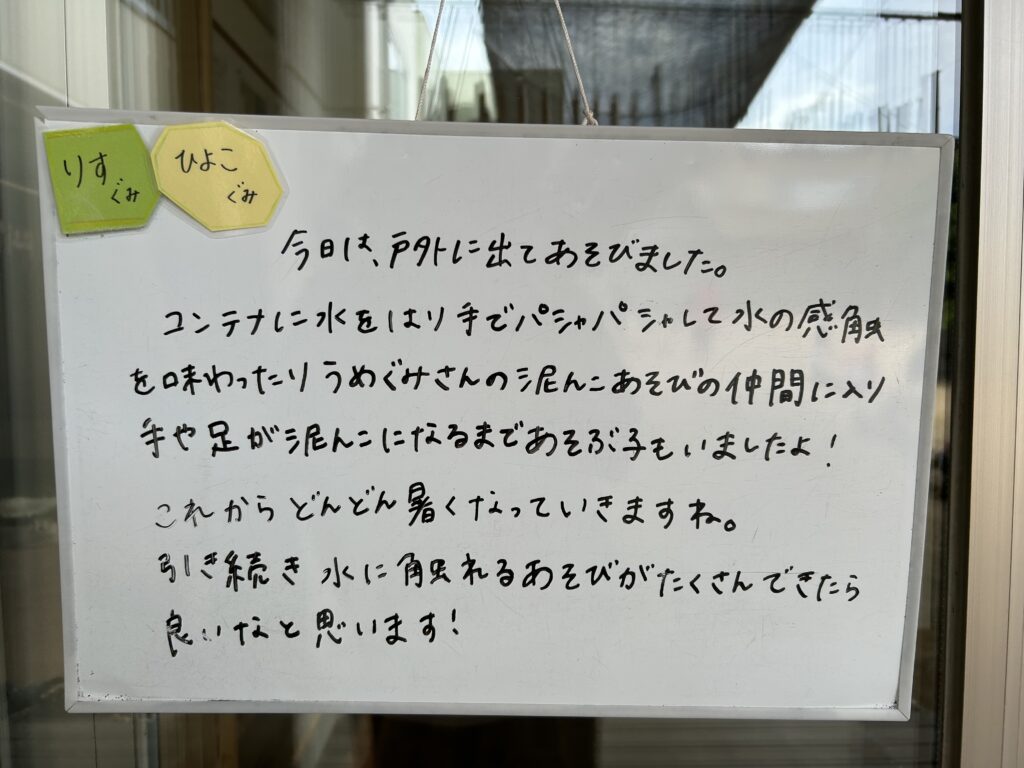 りすぐみ
ひよこぐみ
今日は、戸外に出てあそびました。
コンテナに水をはり手でパシャパシャして水の感触
を味わったりうめぐみさんの泥んこあそびの仲間に入り
手や足が泥んこになるまであそぶ子もいましたよ!
これからどんどん暑くなっていきますね。
引き続き水に触れるあそびがたくさんできたら
良いなと思います!